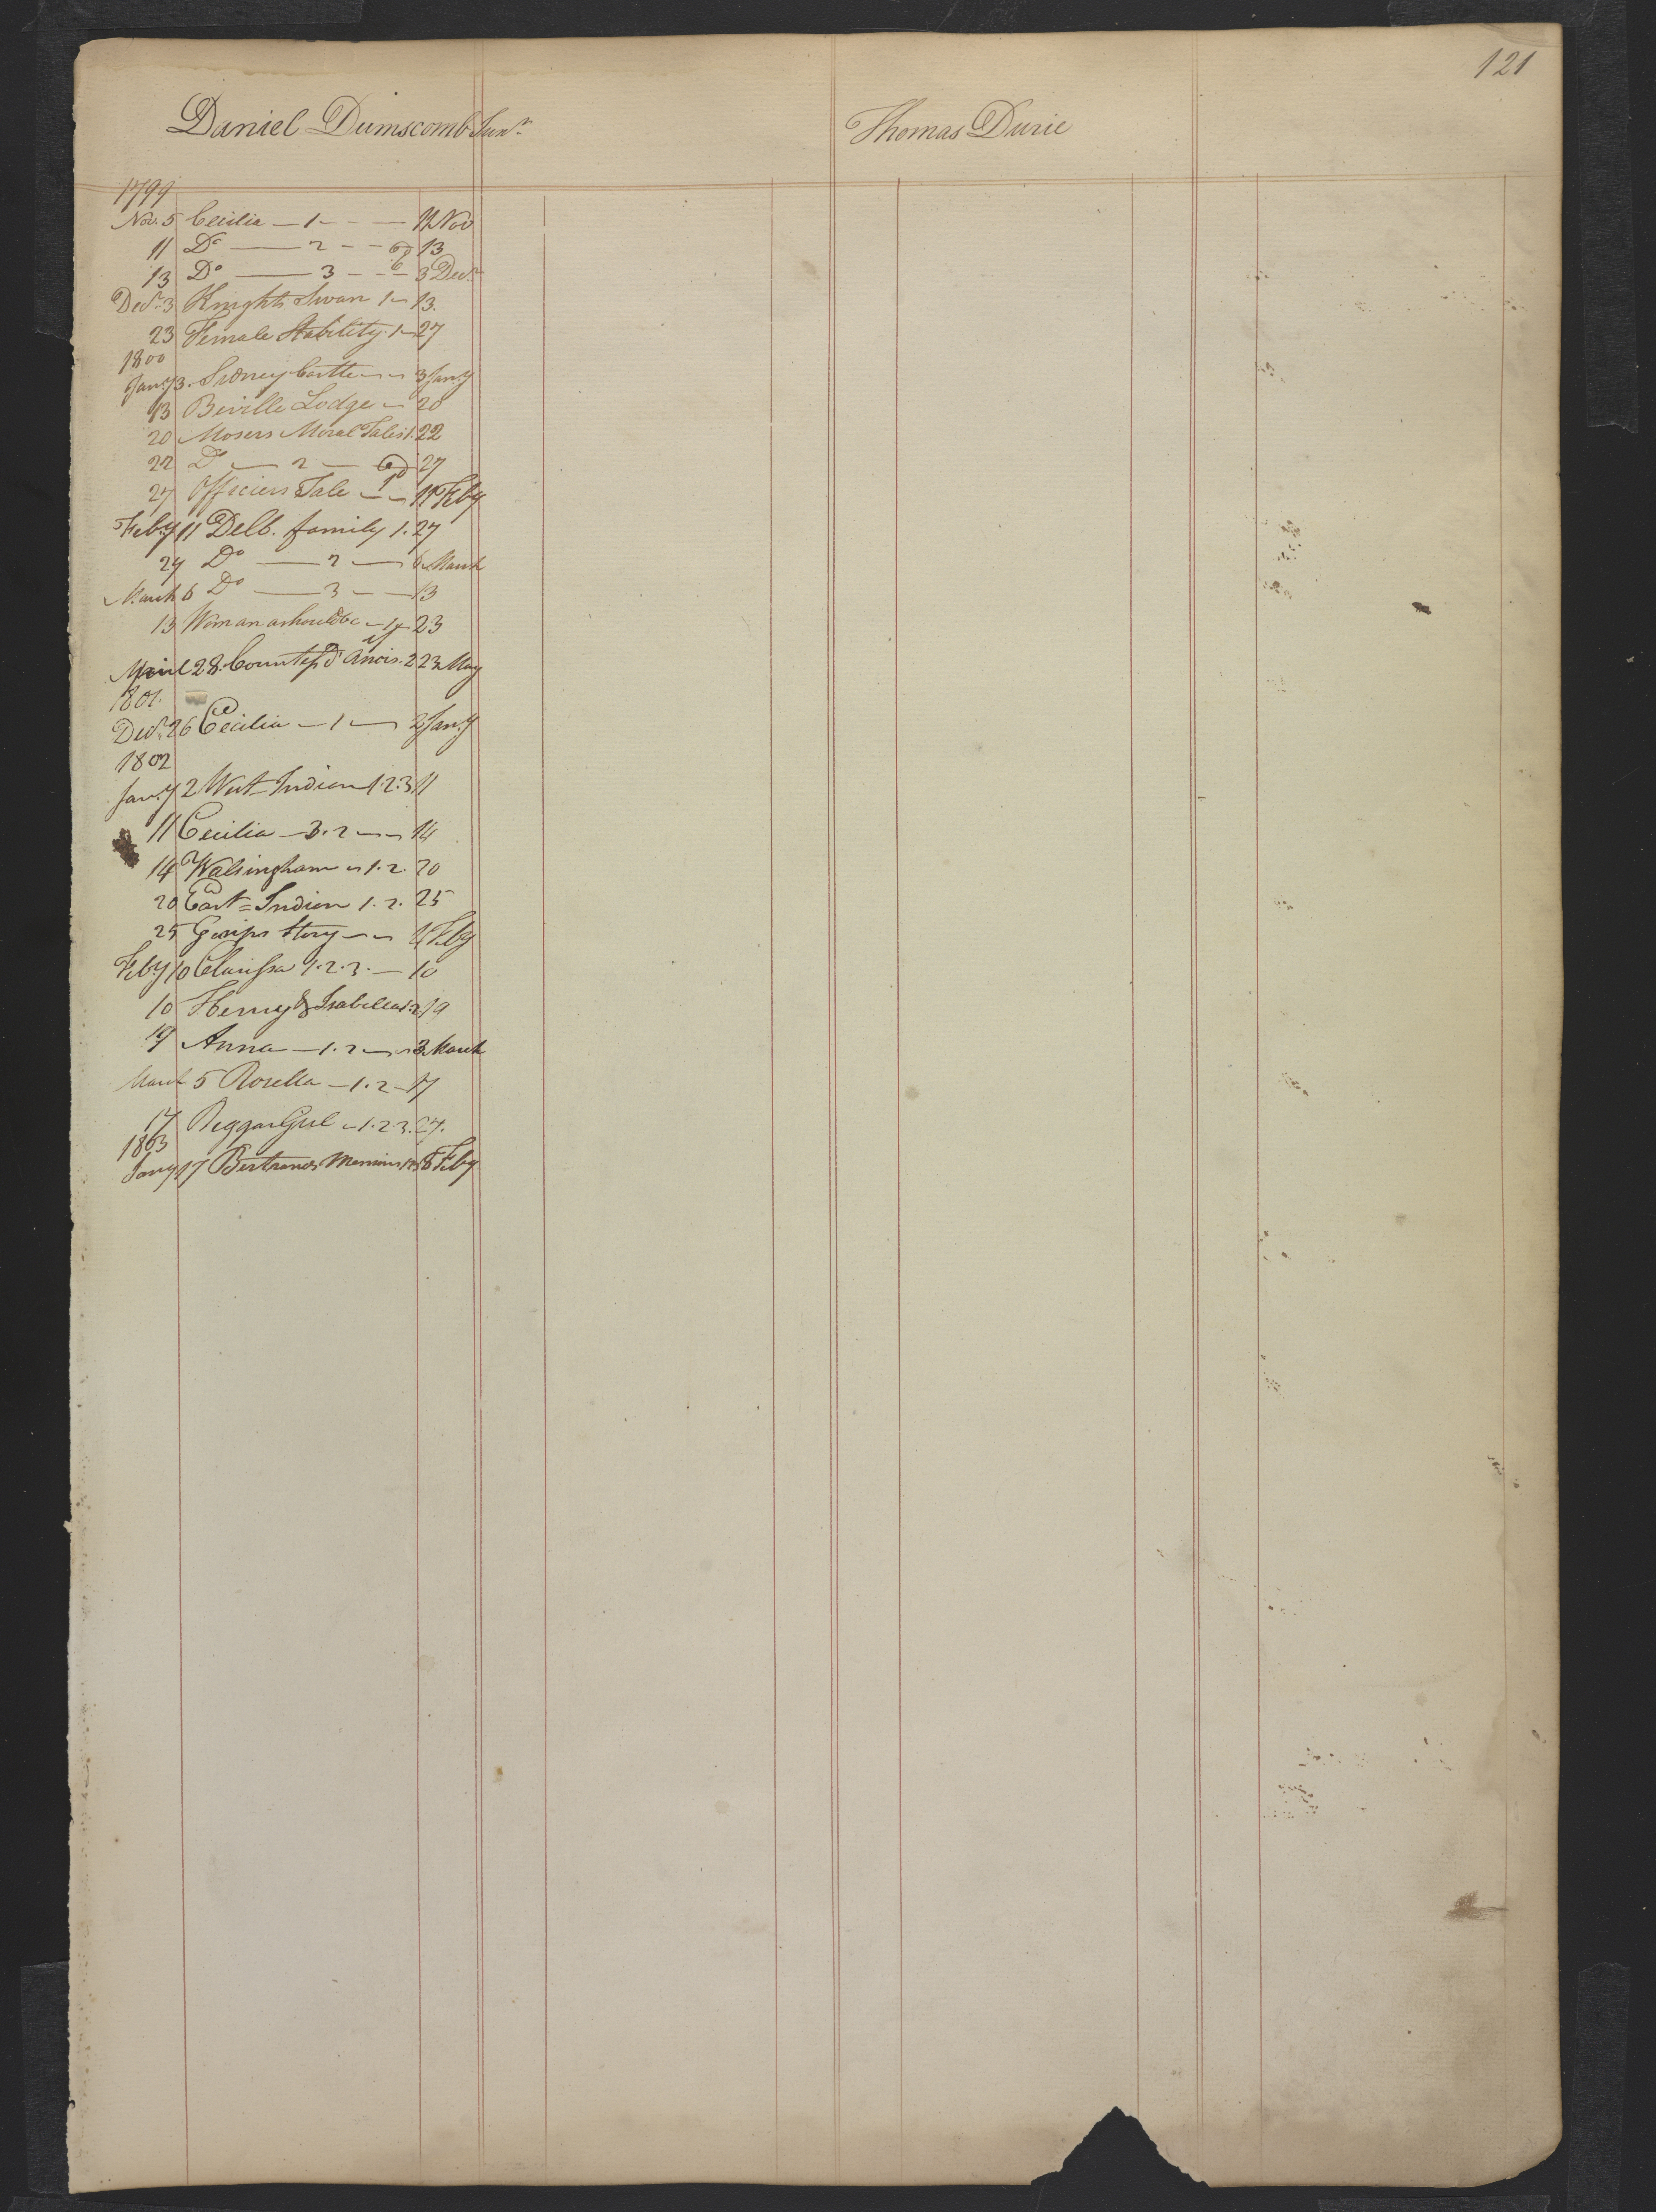 121
Daniel Dumscomb Junr
Thomas Durie
1799
Nov. 5 Cecilia — 1 — — 11 Nov
11 Do — 2 — — 13
13 Do — 3 — — 3 Decr
Decr 3 Knights Swan 1 — 13.
23 Female Stability. 1 — 27
1800
Jany 3. Sidney Castle — — 3 Jany
13 Beville Lodge — 20
20 Mosers Moral Tales 1. 22
22 Do — 2 — 27
27 Officers Tale — — 11 Feby
Feby 11 Delb. family 1. 27
27 Do — 2 — 6 March
March 6 Do — 3 — — 13
13 Woman as should be — 23
April 28. Countess d' Ancis. 2 23 May
1801.
Decr 26 Cecilia — 1 — 2 Jany
1802
Jany 2 West-Indian 1.2.3 11
11 Cecilia — 3.2 — — 14
14 Walsingham — 1.2. 20
20 East=Indian 1.2. 25
25 Gossips Story — — Feby
Feby 10 Clarissa 1.2.3. — 10
10 Henry & Isabella 1.2. 19
19 Anna — 1.2 — 3 March
March 5 Rosella — 1.2 — 17
17 Beggar Girl — 1.2.3. 27.
1803
Jany 17 Bertrands 8 Feby